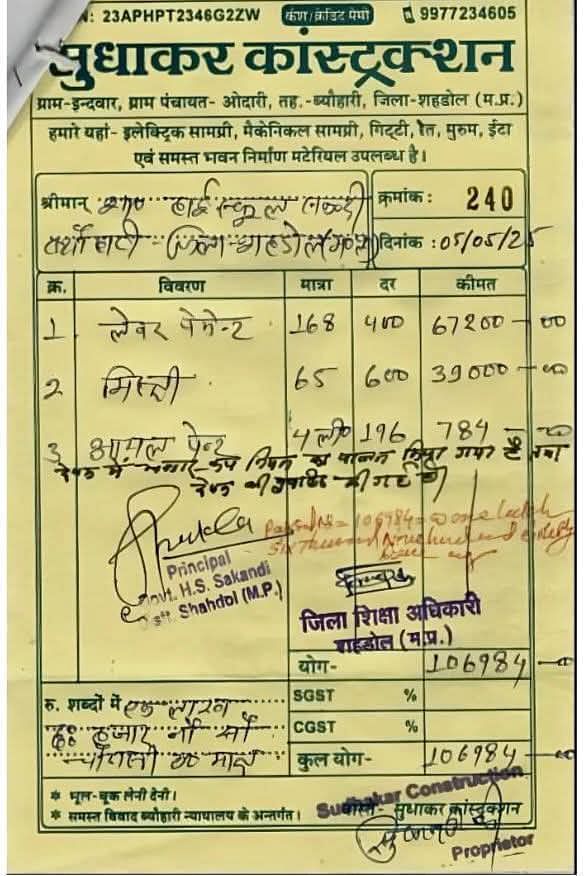 N: 23APHPT2346G2ZW कैश/क्रेडिट मेमो 9977234605
सुधाकर कांस्ट्रक्शन
ग्राम-इन्दवार, ग्राम पंचायत- ओदारी, तह.-ब्यौहारी, जिला-शहडोल (म.प्र.)
हमारे यहां- इलेक्ट्रिक सामग्री, मैकेनिकल सामग्री, गिट्टी, रेत, मुरुम, ईटा
एवं समस्त भवन निर्माण मटेरियल उपलब्ध है।
श्रीमान् हाई स्कूल क्रमांक: 240
जिला-शहडोल दिनांक : 05/05/25
क्र. विवरण मात्रा दर कीमत
1 लेवर पेमेन्ट 168 400 67200-00
2 मिस्त्री 65 600 39000-00
3 आयल पेन्ट 4 ली० 196 784-00
का पालन किया गया है तथा
की गई है
Principal
Govt. H.S. Sakandi
Distt. Shahdol (M.P.)
Passed Rs = 106984 = one lakh
Six thousand Nine hundred eighty
four
जिला शिक्षा अधिकारी
शहडोल (म.प्र.)
योग- 106984-00
रु. शब्दों में एक लाख SGST %
छः हजार नौ सौ CGST %
चौरासी रु० मात्र कुल योग- 106984-00
* भूल-चूक लेनी देनी।
* समस्त विवाद ब्यौहारी न्यायालय के अन्तर्गत।
Sudhakar Construction
वास्ते- सुधाकर कांस्ट्रक्शन
Proprietor